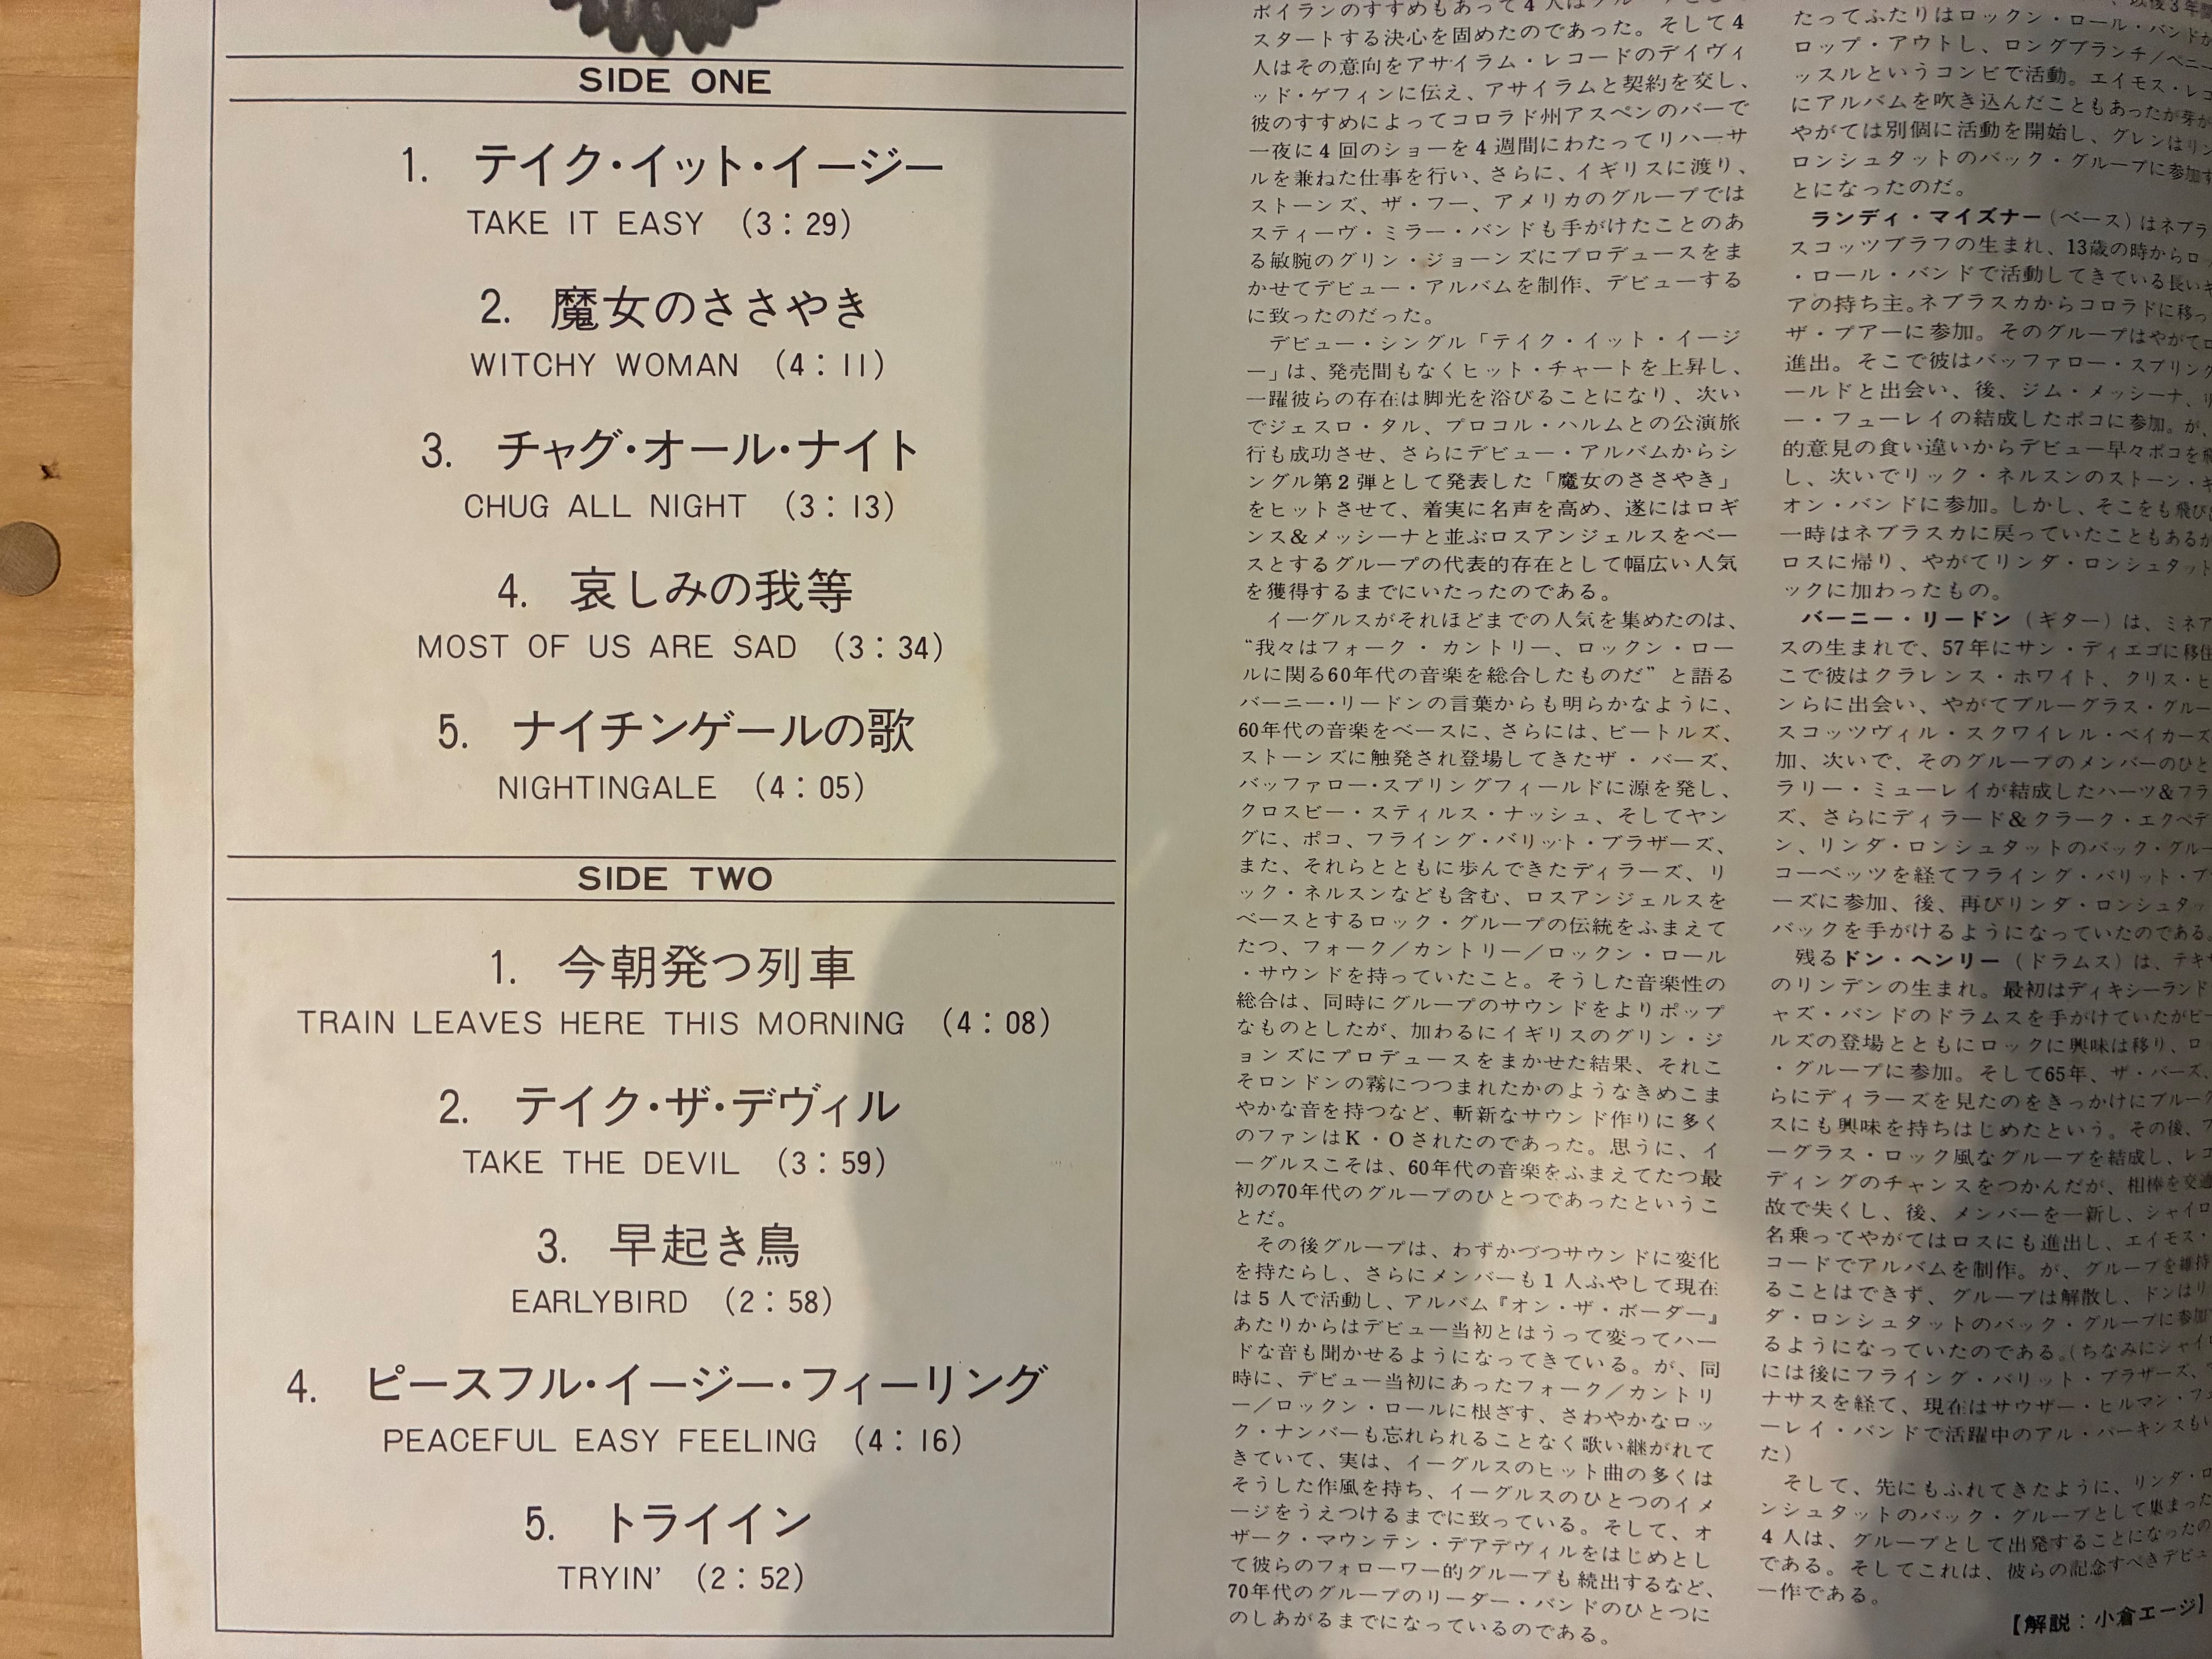 SIDE ONE
1. テイク・イット・イージー
TAKE IT EASY (3:29)
2. 魔女のささやき
WITCHY WOMAN (4:11)
3. チャグ・オール・ナイト
CHUG ALL NIGHT (3:13)
4. 哀しみの我等
MOST OF US ARE SAD (3:34)
5. ナイチンゲールの歌
NIGHTINGALE (4:05)
SIDE TWO
1. 今朝発つ列車
TRAIN LEAVES HERE THIS MORNING (4:08)
2. テイク・ザ・デヴィル
TAKE THE DEVIL (3:59)
3. 早起き鳥
EARLYBIRD (2:58)
4. ピースフル・イージー・フィーリング
PEACEFUL EASY FEELING (4:16)
5. トライイン
TRYIN' (2:52)
ボイランのすすめもあって4人は
スタートする決心を固めたのであった。そして4
人はその意向をアサイラム・レコードのデイヴィ
ッド・ゲフィンに伝え、アサイラムと契約を交し、
彼のすすめによってコロラド州アスペンのバーで
一夜に4回のショーを4週間にわたってリハーサ
ルを兼ねた仕事を行い、さらに、イギリスに渡り、
ストーンズ、ザ・フー、アメリカのグループでは
スティーヴ・ミラー・バンドも手がけたことのあ
る敏腕のグリン・ジョーンズにプロデュースをま
かせてデビュー・アルバムを制作、デビューする
に致ったのだった。
デビュー・シングル「テイク・イット・イージ
ー」は、発売間もなくヒット・チャートを上昇し、
一躍彼らの存在は脚光を浴びることになり、次い
でジェスロ・タル、プロコル・ハルムとの公演旅
行も成功させ、さらにデビュー・アルバムからシ
ングル第2弾として発表した「魔女のささやき」
をヒットさせて、着実に名声を高め、遂にはロギ
ンス&メッシーナと並ぶロスアンジェルスをベー
スとするグループの代表的存在として幅広い人気
を獲得するまでにいたったのである。
イーグルスがそれほどまでの人気を集めたのは、
“我々はフォーク・カントリー、ロックン・ロー
ルに関る60年代の音楽を総合したものだ”と語る
バーニー・リードンの言葉からも明らかなように、
60年代の音楽をベースに、さらには、ビートルズ、
ストーンズに触発され登場してきたザ・バーズ、
バッファロー・スプリングフィールドに源を発し、
クロスビー・スティルス・ナッシュ、そしてヤン
グに、ポコ、フライング・バリット・ブラザーズ、
また、それらとともに歩んできたディラーズ、リ
ック・ネルスンなども含む、ロスアンジェルスを
ベースとするロック・グループの伝統をふまえて
たつ、フォーク/カントリー/ロックン・ロール
・サウンドを持っていたこと。そうした音楽性の
総合は、同時にグループのサウンドをよりポップ
なものとしたが、加わるにイギリスのグリン・ジ
ョンズにプロデュースをまかせた結果、それこ
そロンドンの霧につつまれたかのようなきめこま
やかな音を持つなど、斬新なサウンド作りに多く
のファンはK・Oされたのであった。思うに、イ
ーグルスこそは、60年代の音楽をふまえてたつ最
初の70年代のグループのひとつであったというこ
とだ。
その後グループは、わずかづつサウンドに変化
を持たらし、さらにメンバーも1人ふやして現在
は5人で活動し、アルバム『オン・ザ・ボーダー』
あたりからはデビュー当初とはうって変ってハー
ドな音も聞かせるようになってきている。が、同
時に、デビュー当初にあったフォーク/カントリ
ー/ロックン・ロールに根ざす、さわやかなロッ
ク・ナンバーも忘れられることなく歌い継がれて
きていて、実は、イーグルスのヒット曲の多くは
そうした作風を持ち、イーグルスのひとつのイメ
ージをうえつけるまでに致っている。そして、オ
ザーク・マウンテン・デアデヴィルをはじめとし
て彼らのフォローワー的グループも続出するなど、
70年代のグループのリーダー・バンドのひとつに
のしあがるまでになっているのである。
たってふたりはロックン・ロール・バンド
ロップ・アウトし、ロングブランチ/ペニー
ッスルというコンビで活動。エイモス・レコ
にアルバムを吹き込んだこともあったが芽が
やがては別個に活動を開始し、グレンはリン
ロンシュタットのバック・グループに参加す
とになったのだ。
ランディ・マイズナー(ベース)はネブラ
スコッツブラフの生まれ、13歳の時からロッ
・ロール・バンドで活動してきている長いキ
アの持ち主。ネブラスカからコロラドに移っ
ザ・プアーに参加。そのグループはやがてロ
進出。そこで彼はバッファロー・スプリング
ールドと出会い、後、ジム・メッシーナ、リ
ー・フューレイの結成したポコに参加。が、
的意見の食い違いからデビュー早々ポコを飛
し、次いでリック・ネルスンのストーン・キ
オン・バンドに参加。しかし、そこをも飛び
一時はネブラスカに戻っていたこともあるが
ロスに帰り、やがてリンダ・ロンシュタット
ックに加わったもの。
バーニー・リードン(ギター)は、ミネア
スの生まれで、57年にサン・ディエゴに移住
こで彼はクラレンス・ホワイト、クリス・ヒ
ンらに出会い、やがてブルーグラス・グルー
スコッツヴィル・スクワイレル・ベイカーズ
加、次いで、そのグループのメンバーのひと
ラリー・ミューレイが結成したハーツ&フラ
ズ、さらにディラード&クラーク・エクペデ
ン、リンダ・ロンシュタットのバック・グルー
コーベッツを経てフライング・バリット・ブ
ーズに参加、後、再びリンダ・ロンシュタッ
バックを手がけるようになっていたのである。
残るドン・ヘンリー(ドラムス)は、テキサ
のリンデンの生まれ。最初はディキシーランド
ャズ・バンドのドラムスを手がけていたがビー
ルズの登場とともにロックに興味は移り、ロッ
・グループに参加。そして65年、ザ・バーズ、
らにディラーズを見たのをきっかけにブルーグ
スにも興味を持ちはじめたという。その後、ブ
ーグラス・ロック風なグループを結成し、レコ
ディングのチャンスをつかんだが、相棒を交通
故で失くし、後、メンバーを一新し、シャイロ
名乗ってやがてはロスにも進出し、エイモス・
コードでアルバムを制作。が、グループを維持
ることはできず、グループは解散し、ドンはリ
ダ・ロンシュタットのバック・グループに参加
るようになっていたのである。(ちなみにシャイロ
には後にフライング・バリット・ブラザーズ、
ナサスを経て、現在はサウザー・ヒルマン・フュ
ーレイ・バンドで活躍中のアル・パーキンスもい
た)
そして、先にもふれてきたように、リンダ・ロ
ンシュタットのバック・グループとして集まった
4人は、グループとして出発することになったの
である。そしてこれは、彼らの記念すべきデビュ
一作である。
【解説:小倉エージ】